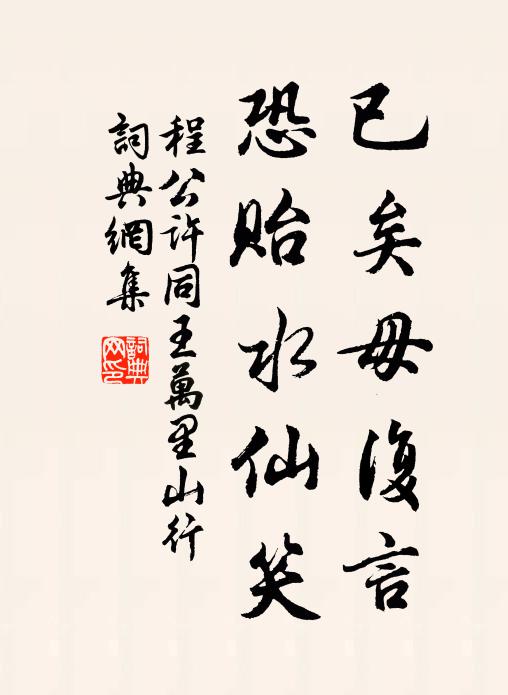 已矣毋復言
恐貽水仙笑
程公許同王萬里山行
詞典網集
詞典網印